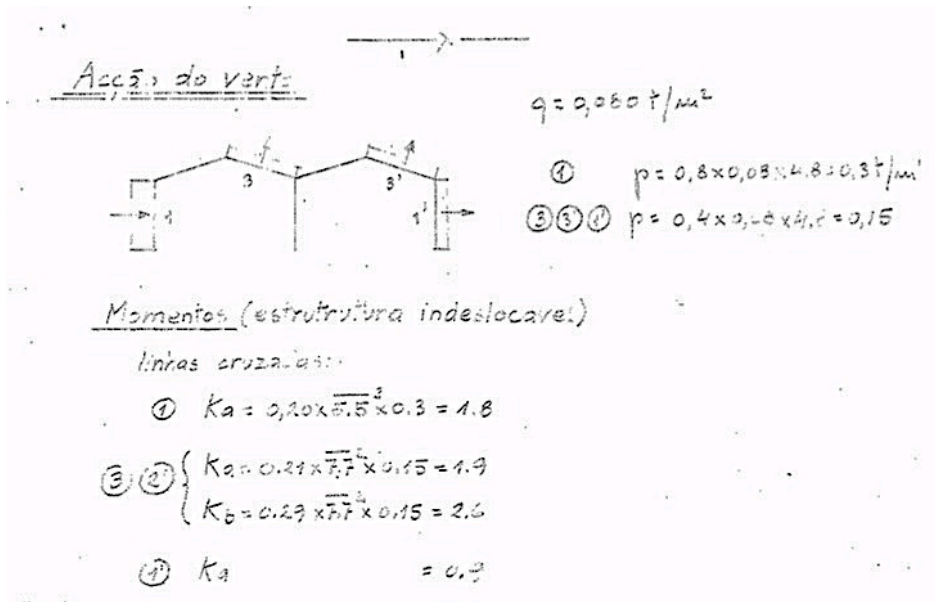 1
Acção do vento
q = 0,080 t/m²
3 3'
1 1'
① p = 0,8 x 0,08 x 4.8 = 0,3 t/m'
③ ③' ①' p = 0,4 x 0,08 x 4,8 = 0,15
Momentos (estrutrutura indeslocavel)
linhas cruzadas:
① Ka = 0,20 x 5.5² x 0.3 = 1.8
③ { Ka = 0.21 x 7.7² x 0.15 = 1.9
Kb = 0.29 x 7.7² x 0.15 = 2.6
①' Ka = 0.9